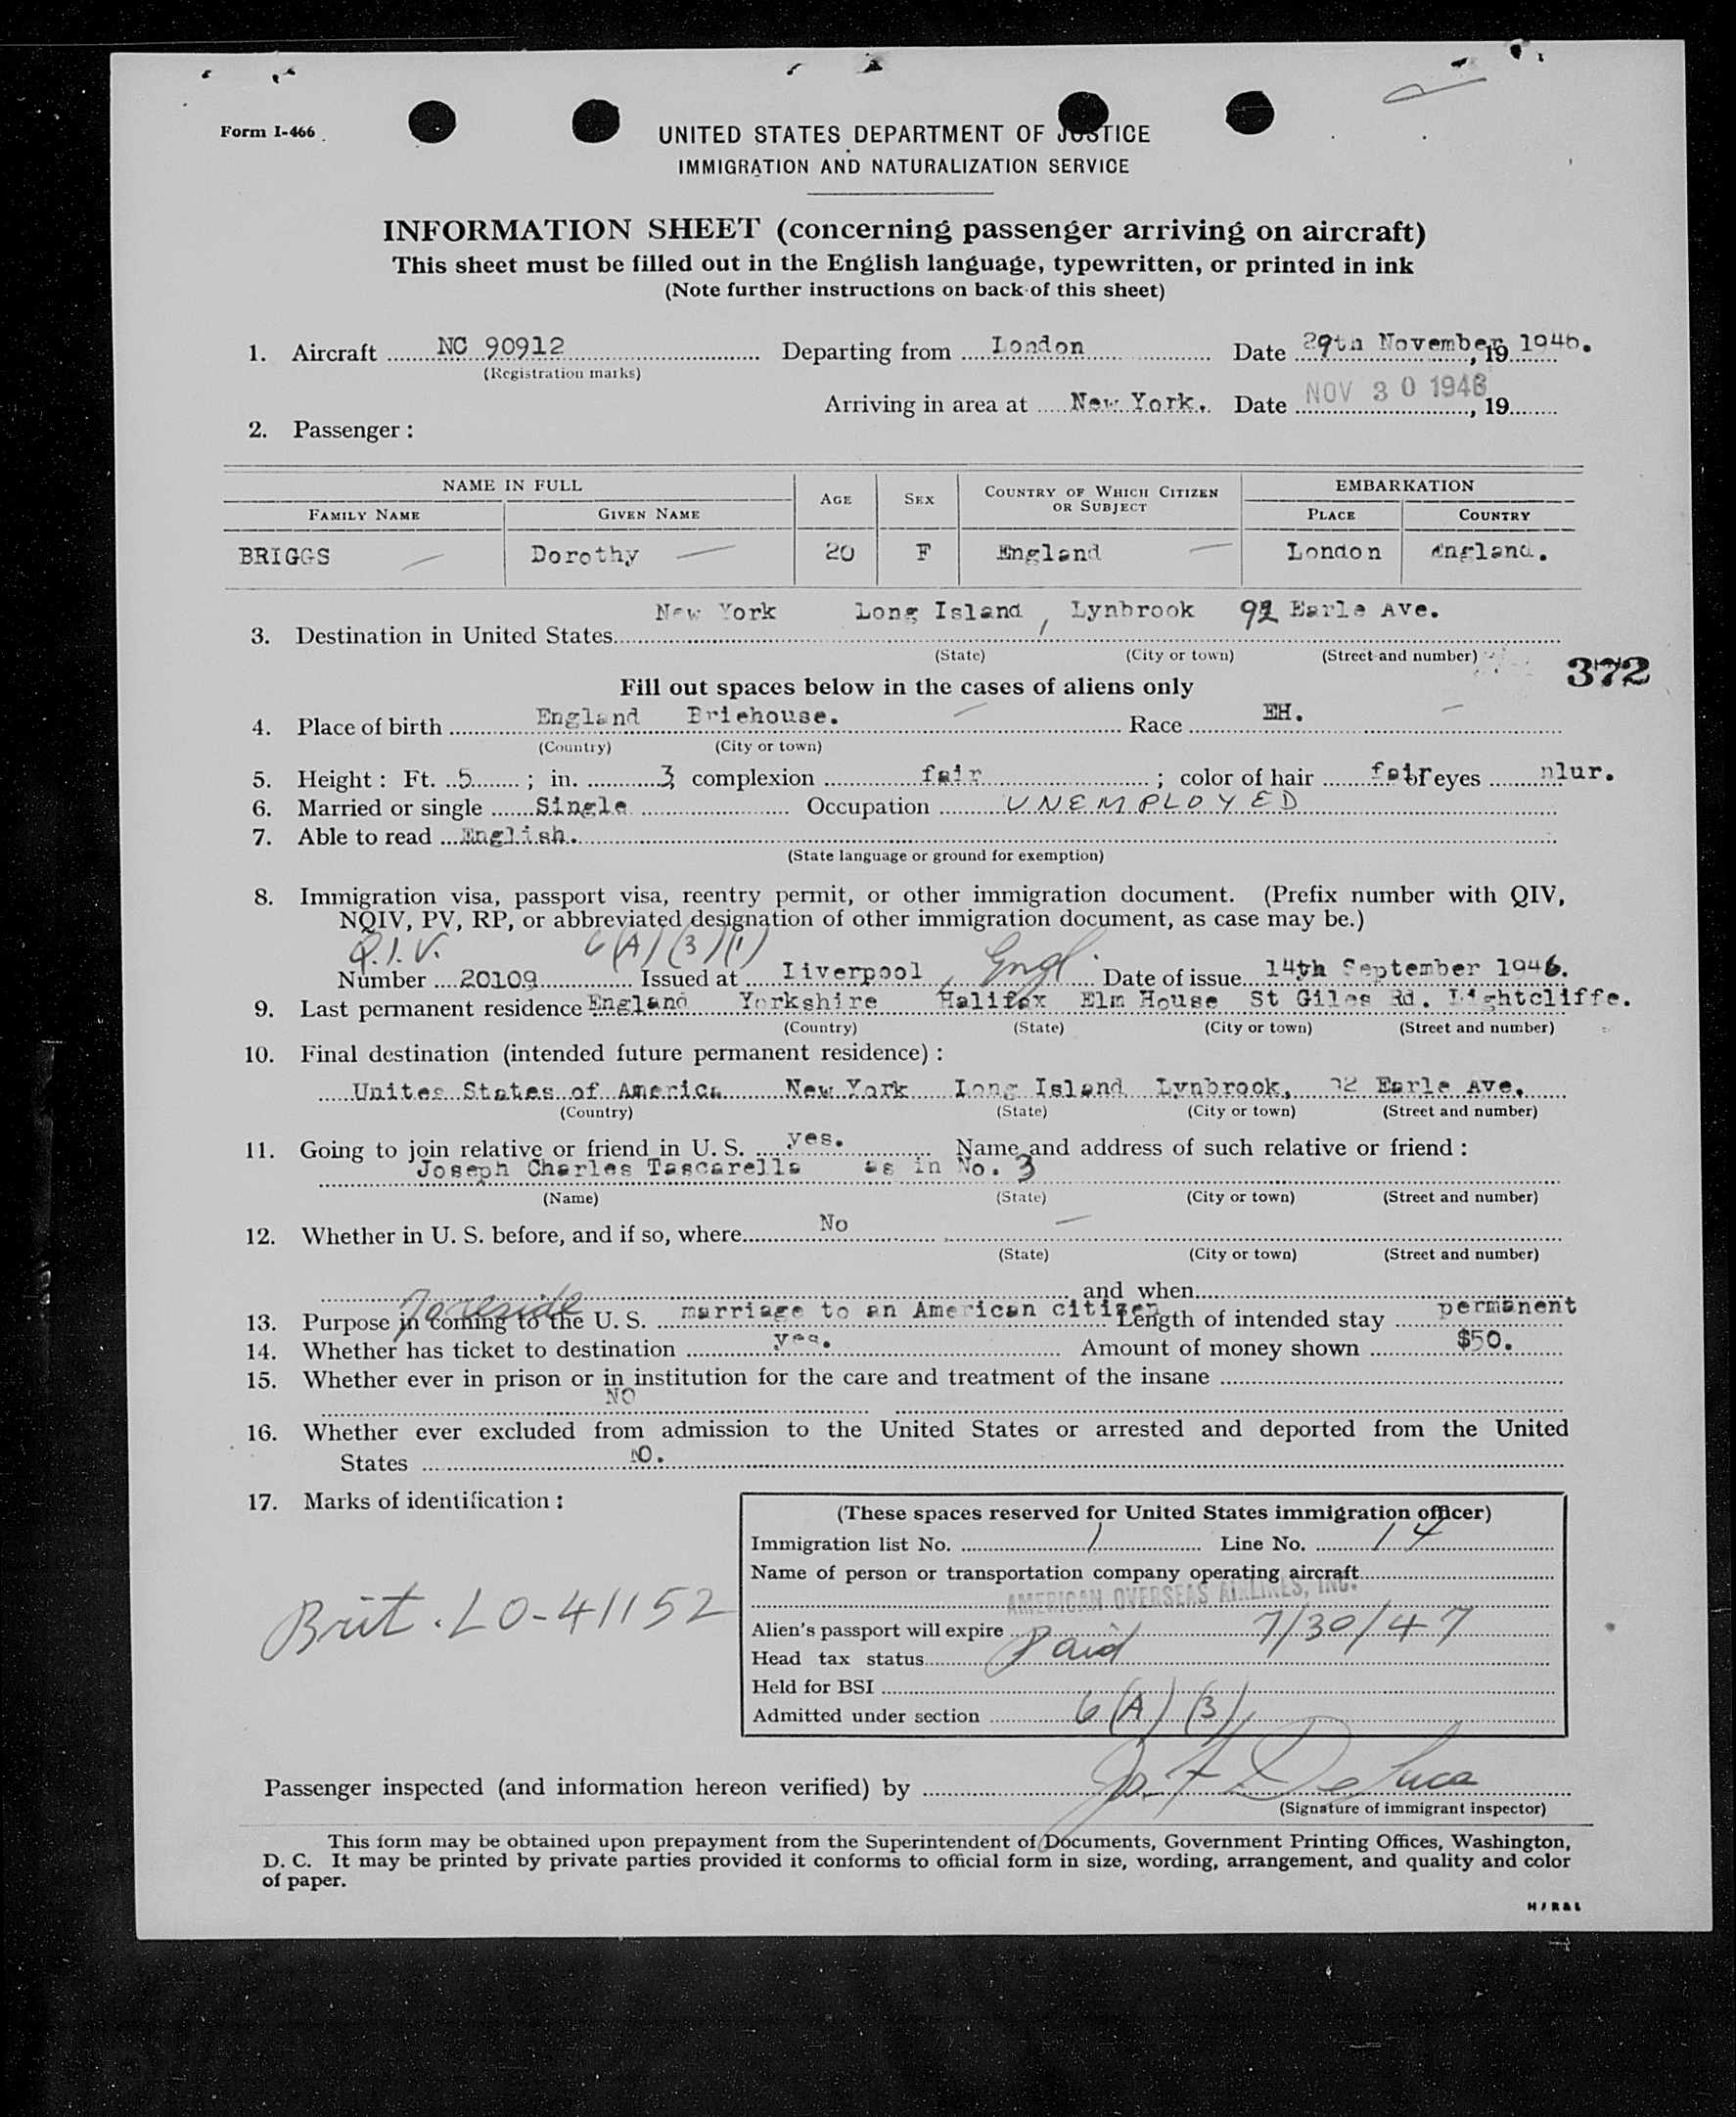 Form I-466
UNITED STATES DEPARTMENT OF JUSTICE
IMMIGRATION AND NATURALIZATION SERVICE
INFORMATION SHEET (concerning passenger arriving on aircraft)
This sheet must be filled out in the English language, typewritten, or printed in ink
(Note further instructions on back of this sheet)
1. Aircraft NC 90912 Departing from London Date 29th November, 19 1946.
(Registration marks)
Arriving in area at New York. Date NOV 30 1946, 19
2. Passenger :
NAME IN FULL AGE SEX COUNTRY OF WHICH CITIZEN OR SUBJECT EMBARKATION
FAMILY NAME GIVEN NAME PLACE COUNTRY
BRIGGS Dorothy 20 F England London England.
New York Long Island, Lynbrook 92 Earle Ave.
3. Destination in United States
(State) (City or town) (Street and number)
372
Fill out spaces below in the cases of aliens only
4. Place of birth England Briehouse. Race EH.
(Country) (City or town)
5. Height : Ft. 5 ; in. 3 complexion fair ; color of hair fair eyes blur.
6. Married or single Single Occupation UNEMPLOYED
7. Able to read English.
(State language or ground for exemption)
8. Immigration visa, passport visa, reentry permit, or other immigration document. (Prefix number with QIV,
NQIV, PV, RP, or abbreviated designation of other immigration document, as case may be.)
Q.I.V. 6(A)(3)(1)
Number 20109 Issued at Liverpool, Engl. Date of issue 14th September 1946.
9. Last permanent residence England Yorkshire Halifax Elm House St Giles Rd. Lightcliffe.
(Country) (State) (City or town) (Street and number)
10. Final destination (intended future permanent residence) :
Unites States of America New York Long Island Lynbrook, 92 Earle Ave.
(Country) (State) (City or town) (Street and number)
11. Going to join relative or friend in U. S. yes. Name and address of such relative or friend :
Joseph Charles Tascarella as in No. 3
(Name) (State) (City or town) (Street and number)
12. Whether in U. S. before, and if so, where No
(State) (City or town) (Street and number)
and when
To reside
13. Purpose in coming to the U. S. marriage to an American citizen Length of intended stay permanent
14. Whether has ticket to destination yes. Amount of money shown $50.
15. Whether ever in prison or in institution for the care and treatment of the insane
NO
16. Whether ever excluded from admission to the United States or arrested and deported from the United
States NO.
17. Marks of identification :
Brit. LO-41152
(These spaces reserved for United States immigration officer)
Immigration list No. 1 Line No. 14
Name of person or transportation company operating aircraft
AMERICAN OVERSEAS AIRLINES, INC.
Alien's passport will expire 7/30/47
Head tax status Paid
Held for BSI
Admitted under section 6(A)(3)
Passenger inspected (and information hereon verified) by Jas F DeLuca
(Signature of immigrant inspector)
This form may be obtained upon prepayment from the Superintendent of Documents, Government Printing Offices, Washington,
D. C. It may be printed by private parties provided it conforms to official form in size, wording, arrangement, and quality and color
of paper.